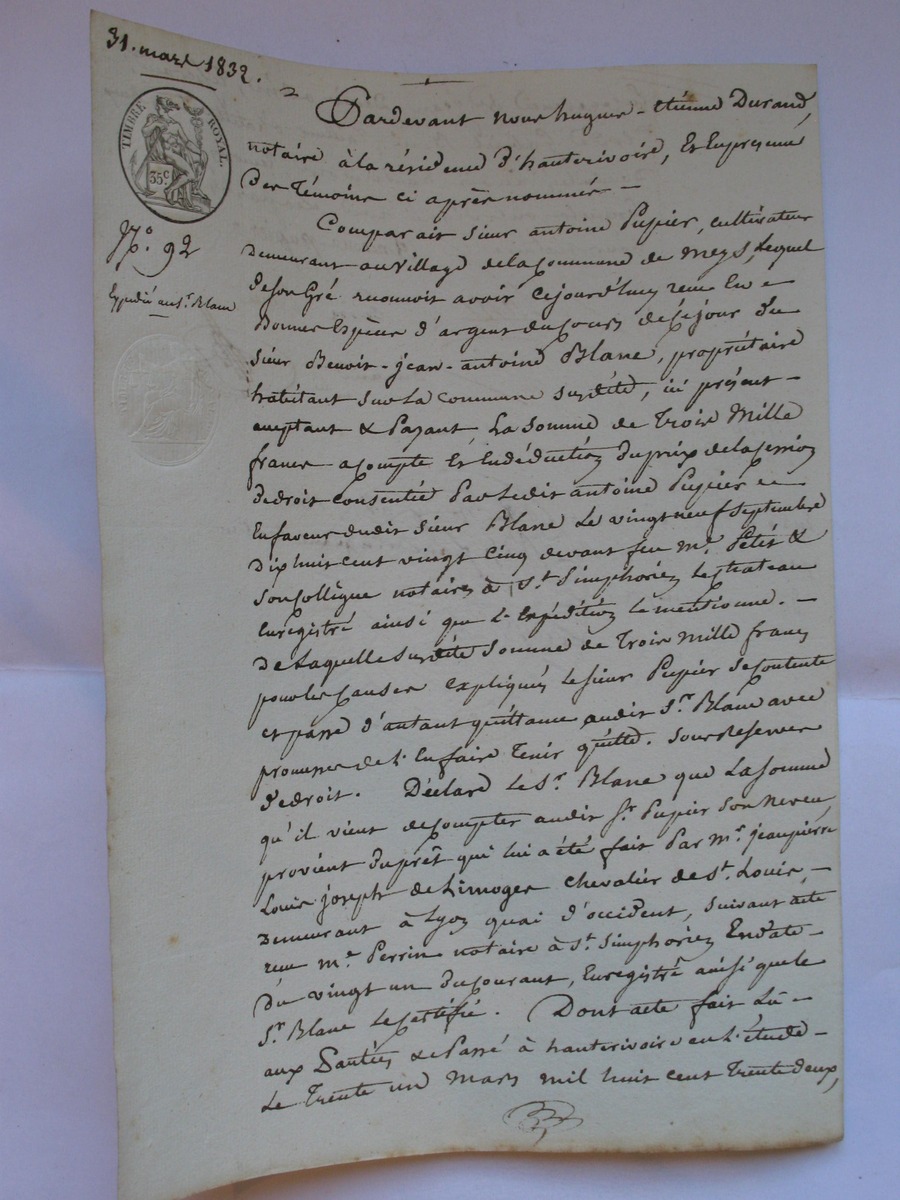 31. mars 1832.
TIMBRE ROYAL.
35 c
N.º 92
Expédié au S.r Blanc
Pardevant nous hugues-étienne Durand,
notaire à la résidence d'hauterivoire, Et En présence
Des Témoins ci après nommés —
Comparait Sieur antoine Pupier, cultivateur
Demeurant au village de la Commune de meys, Lequel
de son Gré reconnoit avoir cejourd'huy reçu En
Bonnes Espèces d'argent du Cours de ce jour du
Sieur Benoit-jean-antoine Blanc, propriétaire
habitant sur La Commune susdite, ici présent —
acceptant & Payant, La Somme de Trois Mille
francs acompte Et En déduction du prix de la cession
de droit consentie Par Ledit antoine Pupier
En faveur dudit Sieur Blanc Le vingt neuf Septembre
Dix huit cent vingt Cinq devant feu m.e Petit &
Son Collègue notaires à S.t Simphorien Le chateau
Enregistré ainsi que L'Expédition Le mentionne. —
De Laquelle Susdite Somme de Trois Mille francs
pour les causes Expliquées le Sieur Pupier se contente
et passe d'autant quittance audit S.r Blanc avec
promesse de L'En faire Tenir quitte. Sous Reserves
de droit. Déclare Le S.r Blanc que La Somme
qu'il vient de compter audit S.r Pupier Son neveu,
provient du prêt qui lui a été fait Par m.r jean pierre
Louis joseph de Limoges Chevalier de S.t Louis, —
Demeurant à Lyon quai d'occident, Suivant acte
reçu m.e Perrin notaire à S.t Simphorien En date —
du vingt un du Courant, Enregistré ainsi que le
S.r Blanc Le certifie. Dont acte fait Lu —
aux Parties & Passé à hauterivoire en L'étude —
Le Trente un Mars mil huit cent Trente deux,